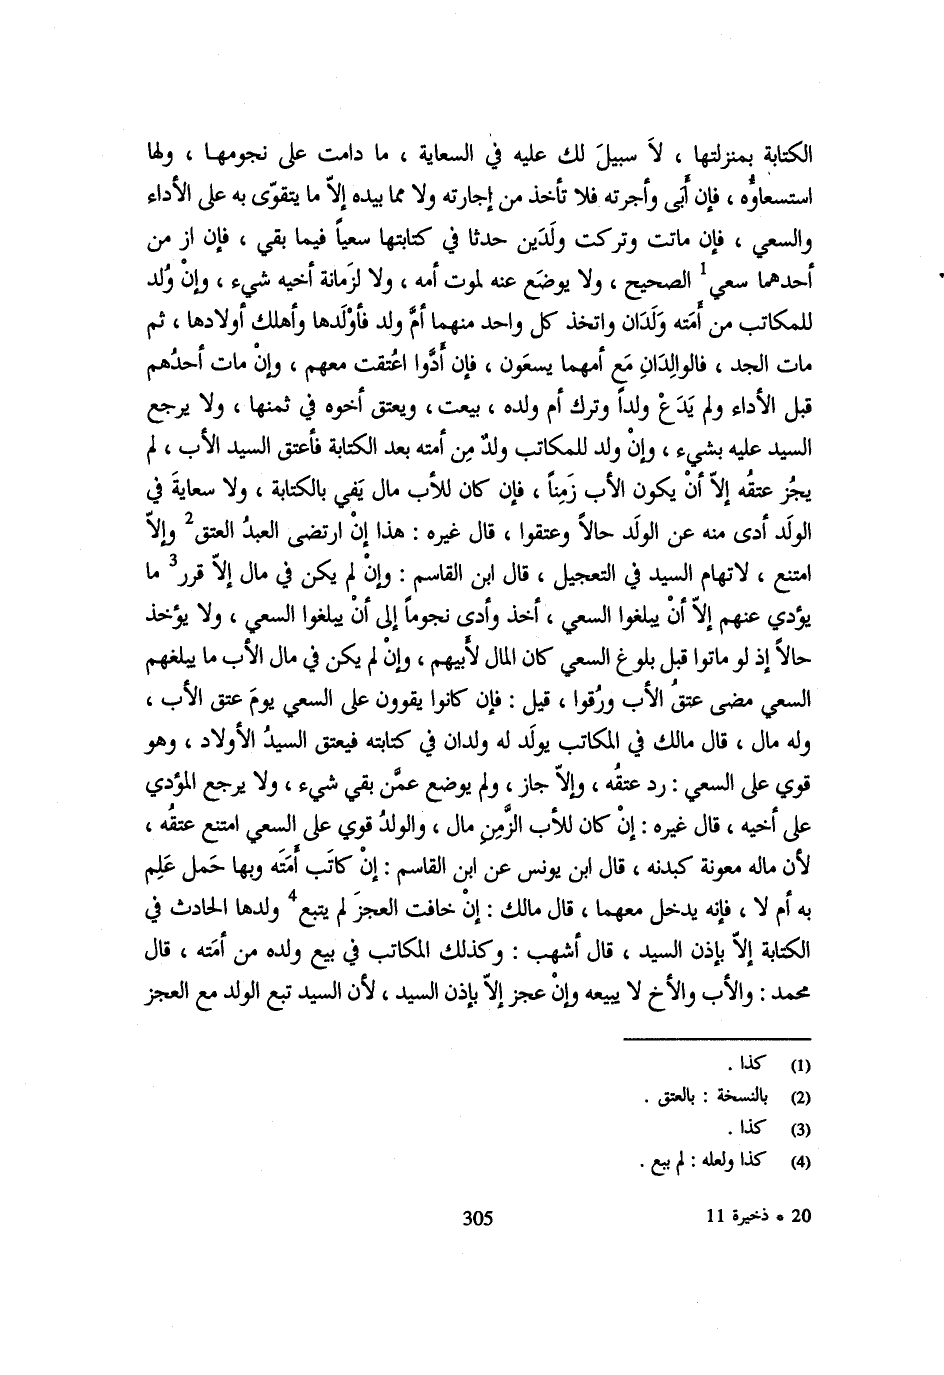 الكتابة بمنزلتها ، لاَ سبيلَ لك عليه في السعاية ، ما دامت على نجومها ، ولها
استسعاؤُه ، فإن أَبَى وأجرته فلا تأخذ من إجارته ولا مما بيده إلاّ ما يتقوّى به على الأداء
والسعي ، فإن ماتت وتركت ولَدَين حدثا في كتابتها سعياً فيما بقي ، فإن از من
أحدهما سعي1 الصحيح ، ولا يوضَع عنه لموت أمه ، ولا لزَمانة أخيه شيء ، وإنْ وُلد
للمكاتب من أَمَته وَلَدَان واتخذ كل واحد منهما أمَّ ولد فأوْلَدها وأهلك أولادها ، ثم
مات الجد ، فالوالِدَانِ مَع أمهما يسعَون ، فإن أَدَّوا اعْتقت معهم ، وإنْ مات أحدُهم
قبل الأداء ولم يَدَعْ ولداً وترك أم ولده ، بيعت ، ويعتق أخوه في ثمنها ، ولا يرجع
السيد عليه بشيء ، وإنْ ولد للمكاتب ولدٌ مِن أمته بعد الكتابة فأعتق السيد الأب ، لم
يجُز عتقُه إلاّ أنْ يكون الأب زَمِناً ، فإن كان للأب مال يَفي بالكتابة ، ولا سعايةَ في
الولَد أدى منه عن الولَد حالاً وعتقوا ، قال غيره : هذا إنْ ارتضى العبدُ العتق2 وإلاّ
امتنع ، لاتهام السيد في التعجيل ، قال ابن القاسم : وإنْ لم يكن في مال إلاّ قرر3 ما
يؤدي عنهم إلاّ أنْ يبلغوا السعي ، أخذ وأدى نجوماً إلى أنْ يبلغوا السعي ، ولا يؤخذ
حالاً إذ لو ماتوا قبل بلوغ السعي كان المال لأبيهم ، وإنْ لم يكن في مال الأب ما يبلغهم
السعي مضى عتقُ الأب ورُقوا ، قيل : فإن كانوا يقوون على السعي يومَ عتق الأب ،
وله مال ، قال مالك في المكاتب يولَد له ولدان في كتابته فيعتق السيدُ الأولاد ، وهو
قوي على السعي : رد عتقُه ، وإلاّ جاز ، ولم يوضع عمَّن بقي شيء ، ولا يرجع المؤدي
على أخيه ، قال غيره : إنْ كان للأب الزَّمِنِ مال ، والولدُ قوي على السعي امتنع عتقُه ،
لأن ماله معونة كبدنه ، قال ابن يونس عن ابن القاسم : إنْ كاتَب أَمَتَه وبها حَمل عَلِم
به أم لا ، فإنه يدخل معهما ، قال مالك : إنْ خافت العجزَ لم يتبع4 ولدها الحادث في
الكتابة إلاّ بإذن السيد ، قال أشهب : وكذلك المكاتب في بيع ولده من أمَته ، قال
محمد : والأب والأخ لا يبيعه وإنْ عجز إلاّ بإذن السيد ، لأن السيد تبع الولد مع العجز
(1) كذا .
(2) بالنسخة : بالعتق .
(3) كذا .
(4) كذا ولعله : لم بيع .
20 * ذخيرة 11
305